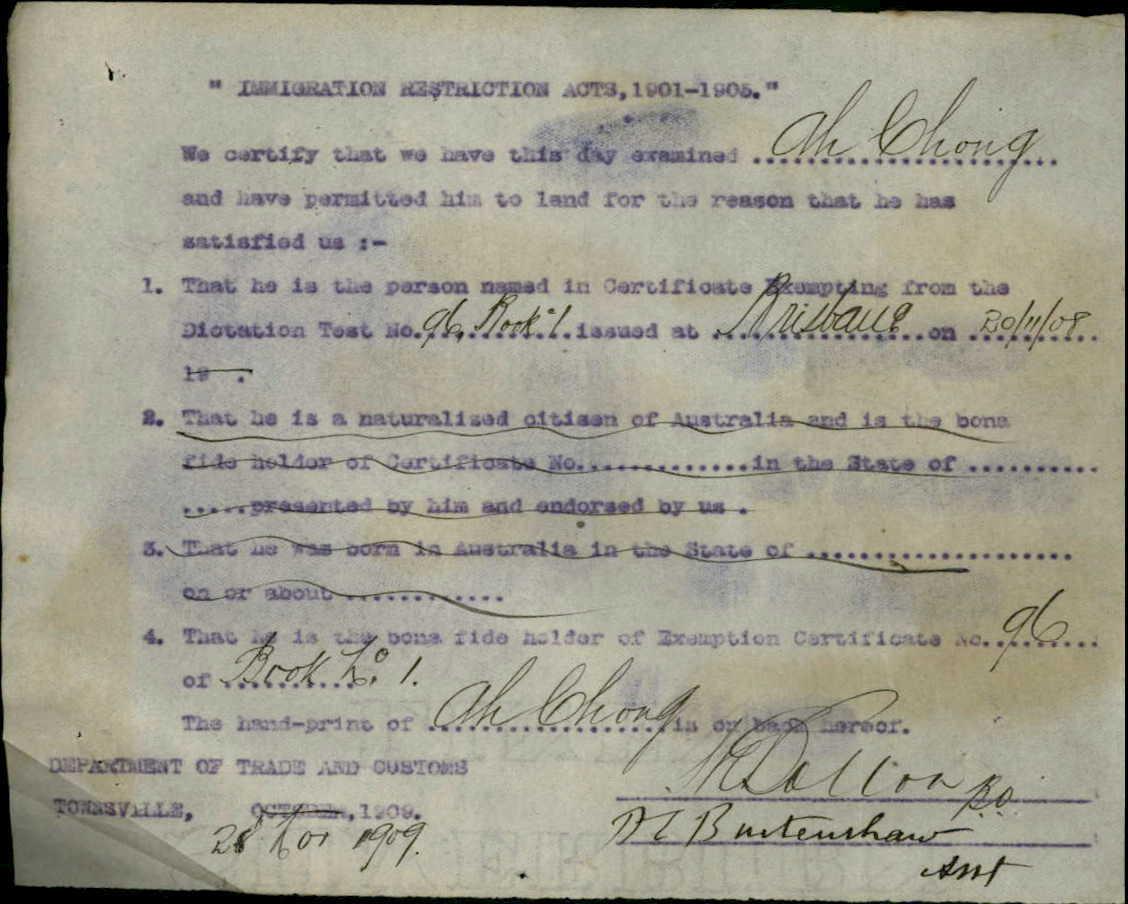 " IMMIGRATION RESTRICTION ACTS,1901-1905."
We certify that we have this day examined Ah Chong
and have permitted him to land for the reason that he has
satisfied us :-
1. That he is the person named in Certificate Exempting from the
Dictation Test No. 96 Book 1. issued at Brisbane on 20/11/08
19 .
2. That he is a naturalized citizen of Australia and is the bona
fide holder of Certificate No..............in the State of ..........
.....presented by him and endorsed by us .
3. That he was born in Australia in the State of .....................
on or about ............
4. That he is the bona fide holder of Exemption Certificate No. 96
of Book No. 1.
The hand-print of Ah Chong is on back hereof.
DEPARTMENT OF TRADE AND CUSTOMS
TOWNSVILLE, OCTOBER,1909.
28 Nov 1909.
Dalton
Burtenshaw
Asst